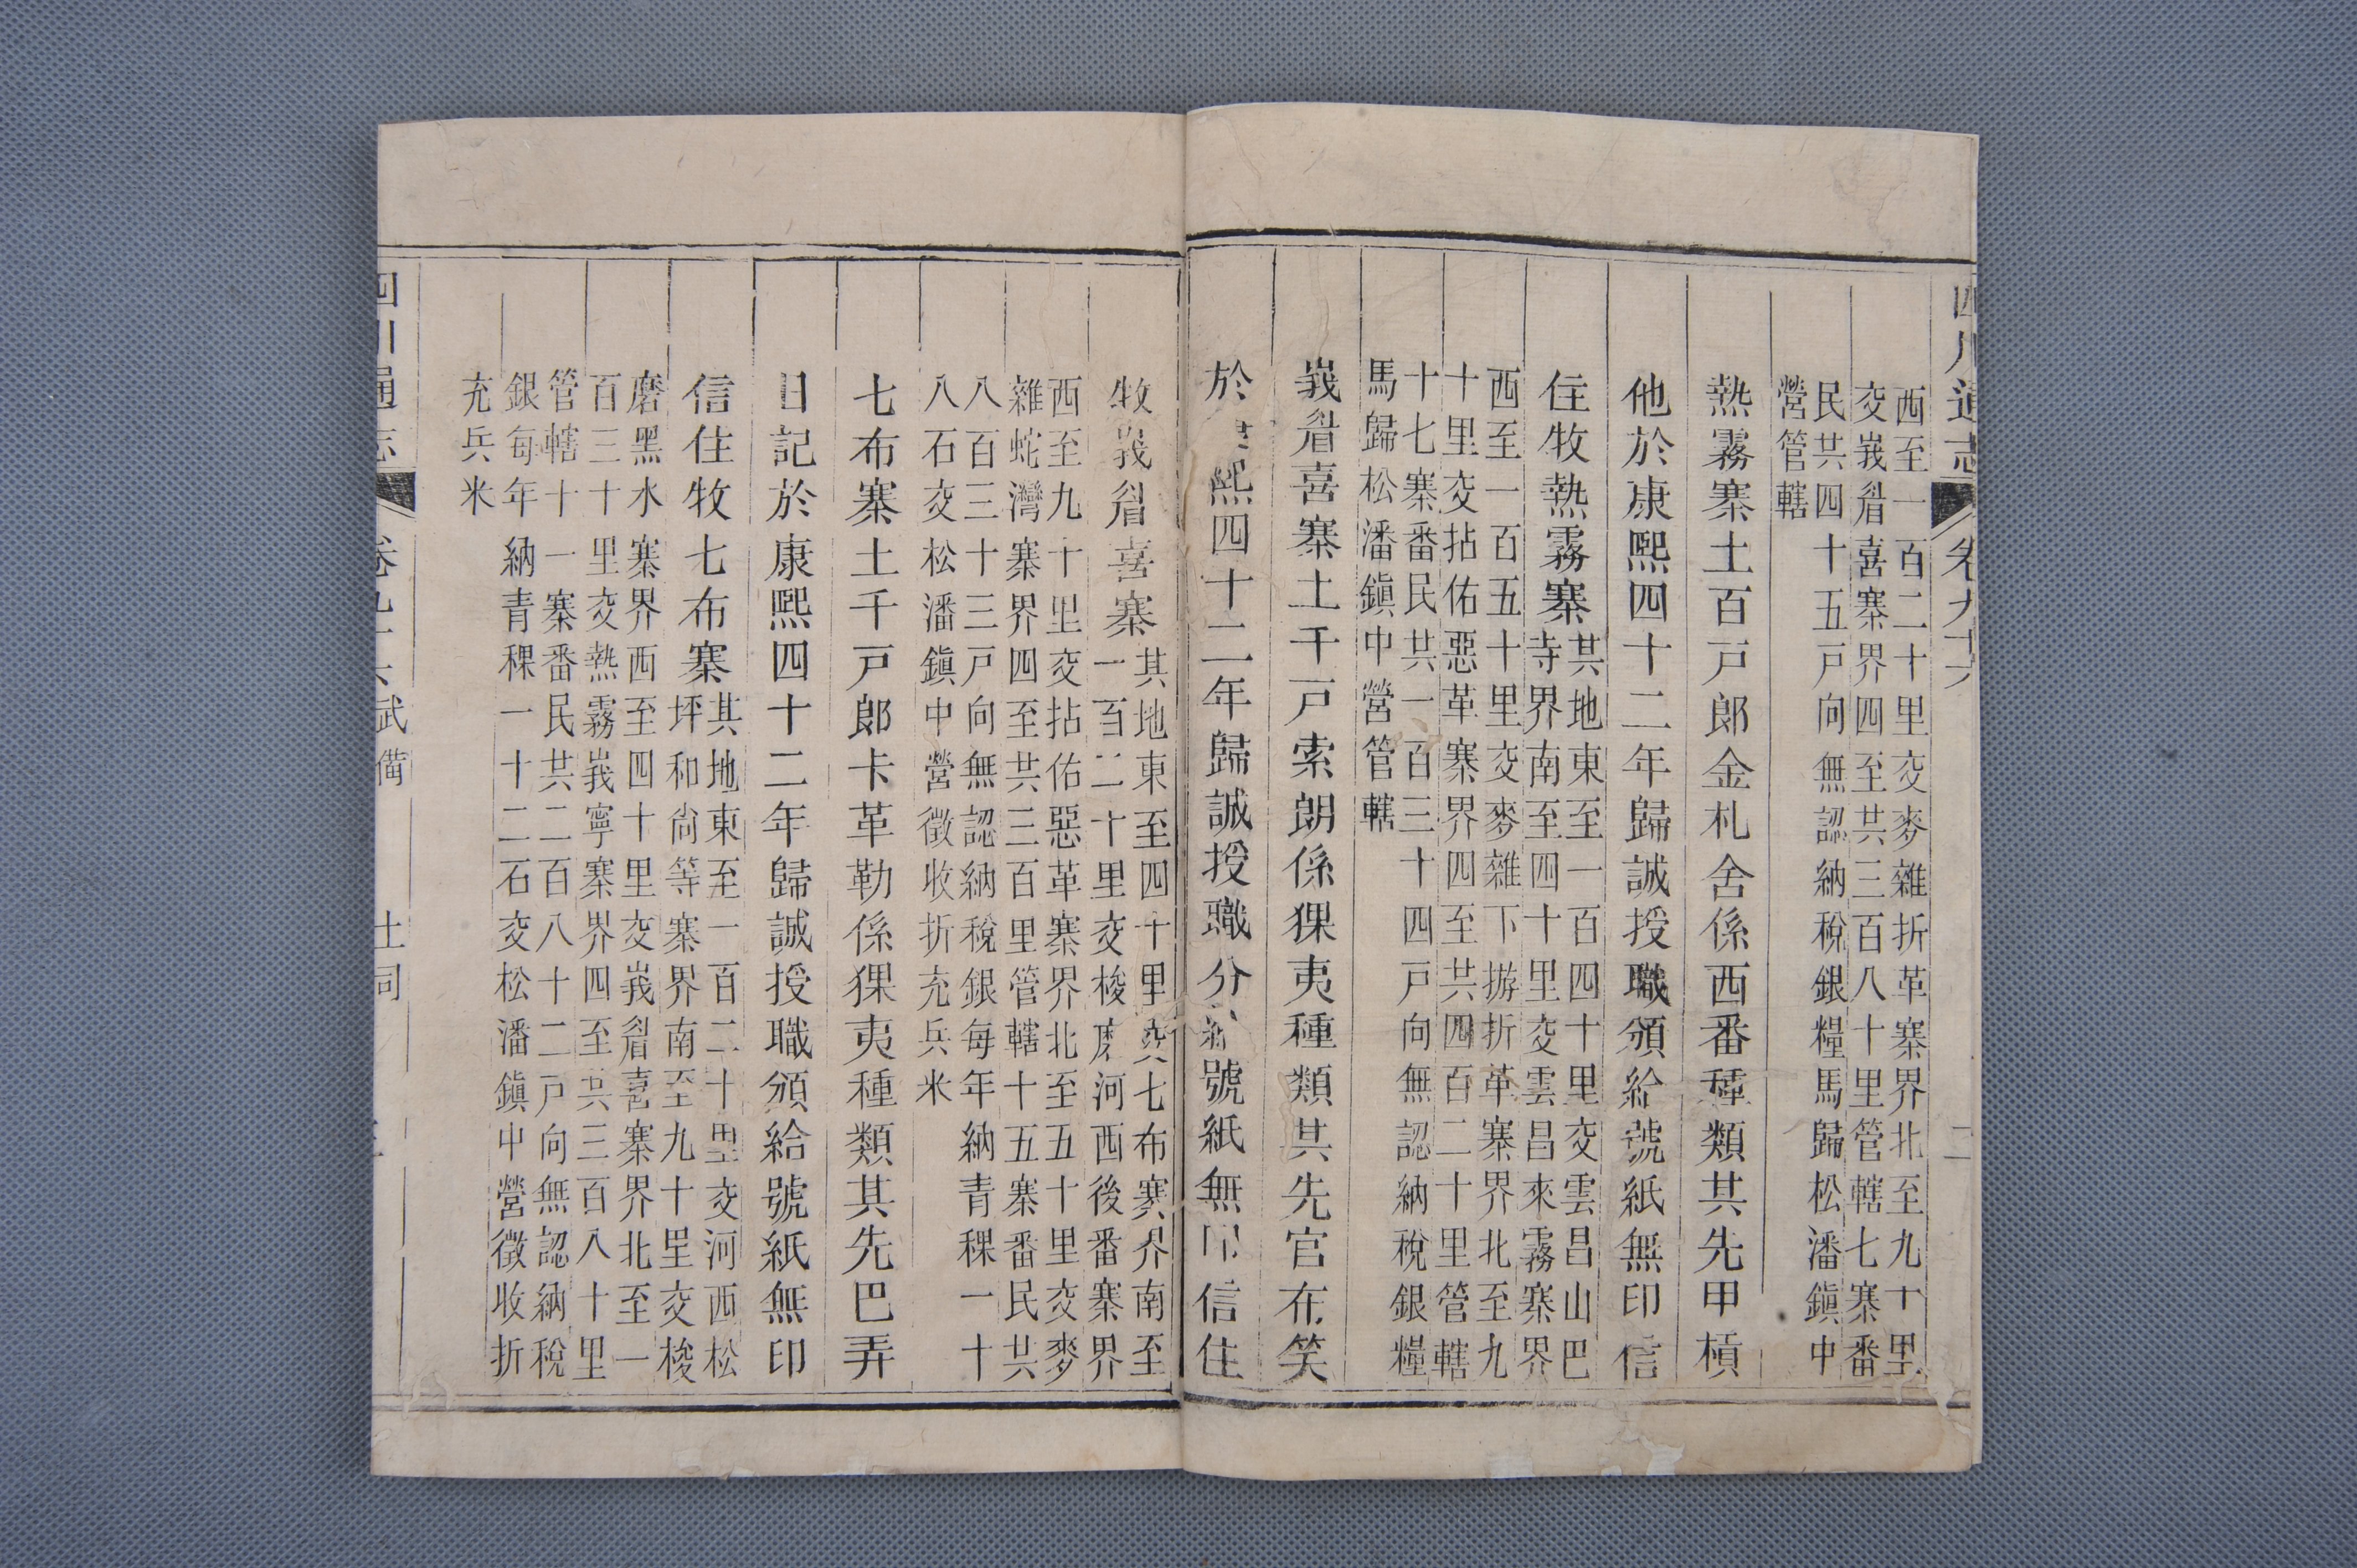 四川通志 卷九十六 二
西至一百二十里交麥雜折革寨界北至九十里
交峩眉喜寨界四至共三百八十里管轄七寨番
民共四十五戸向無認納稅銀糧馬歸松潘鎭中
營管轄
熱霧寨土百戸郎金札舍係西番種類其先甲槓
他於康熙四十二年歸誠授職頒給號紙無印信
住牧熱霧寨其地東至一百四十里交雲昌山巴
寺界南至四十里交雲昌來霧寨界
西至一百五十里交麥雜下㳺折革寨界北至九
十里交拈佑惡革寨界四至共四百二十里管轄
十七寨番民共一百三十四戸向無認納稅銀糧
馬歸松潘鎭中營管轄
峩眉喜寨土千戸索朗係猓夷種類其先官布笑
於康熙四十二年歸誠授職分給號紙無印信住
牧峩眉喜寨其地東至四十里交七布寨界南至
一百二十里交梭磨河西後番寨界
西至九十里交拈佑惡革寨界北至五十里交麥
雜蛇灣寨界四至共三百里管轄十五寨番民共
八百三十三戸向無認納稅銀每年納青稞一十
八石交松潘鎭中營徵收折充兵米
七布寨土千戸郎卡革勒係猓夷種類其先巴弄
目記於康熙四十二年歸誠授職頒給號紙無印
信住牧七布寨其地東至一百二十里交河西松
坪和尙等寨界南至九十里交梭
磨黑水寨界西至四十里交峩眉喜寨界北至一
百三十里交熱霧峩寧寨界四至共三百八十里
管轄十一寨番民共二百八十二戸向無認納稅
銀每年納青稞一十二石交松潘鎭中營徵收折
充兵米
四川通志 卷九十六 武備 土司